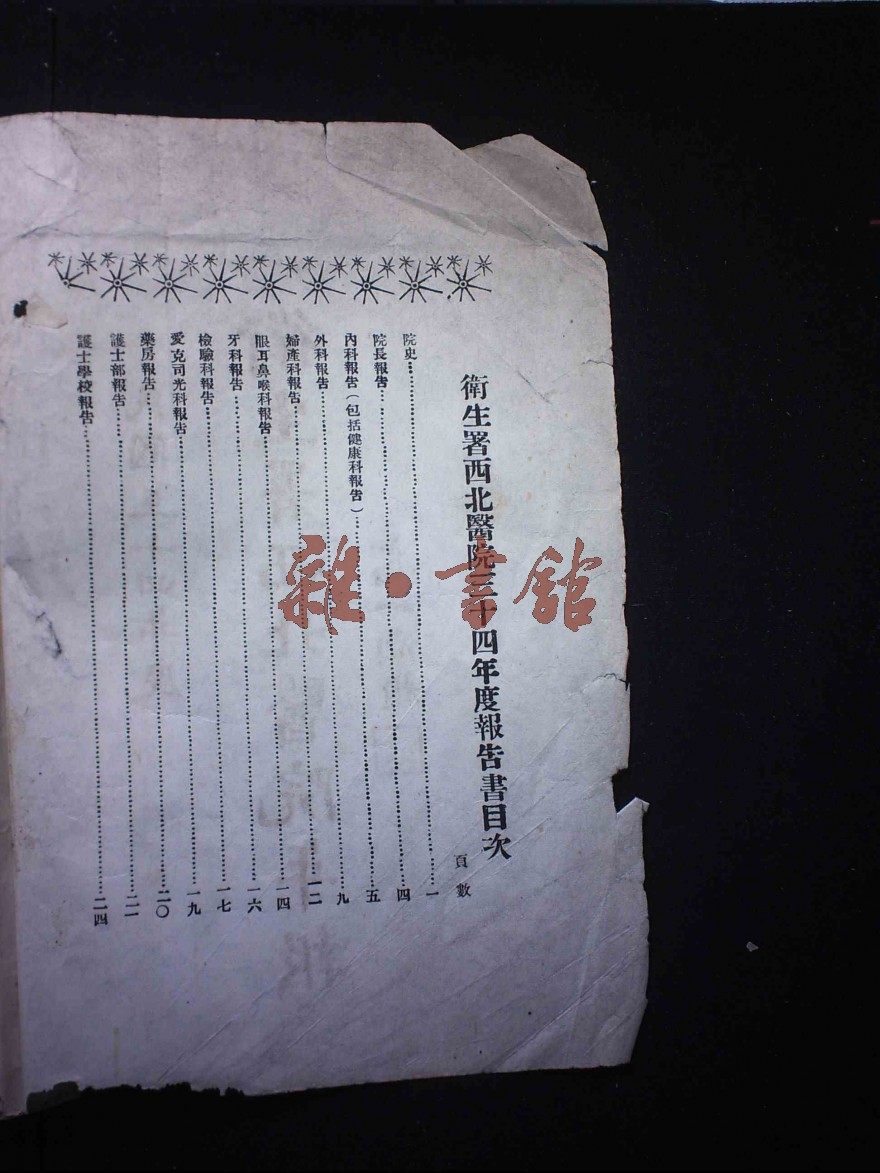 衛生署西北醫院三十四年度報告書目次
頁數
院史…………一
院長報告…………四
內科報告（包括健康科報告）…………五
外科報告…………九
婦產科報告…………一二
眼耳鼻喉科報告…………一四
牙科報告…………一六
檢驗科報告…………一七
愛克司光科報告…………一九
藥房報告…………二〇
護士部報告…………二一
護士學校報告…………二四
雜·書館